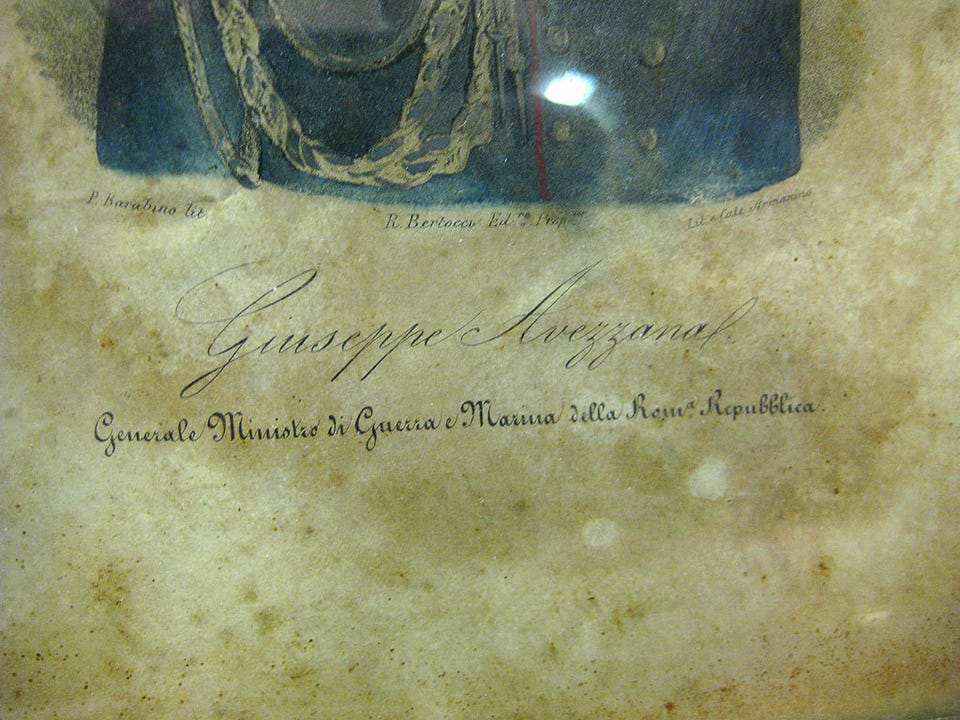 P. Barabino lit.
R. Bertocci Ed.re e Prop.rio
Lit. e Calc. Armanino
Giuseppe Avezzana
Generale Ministro di Guerra e Marina della Rom.a Repubblica.